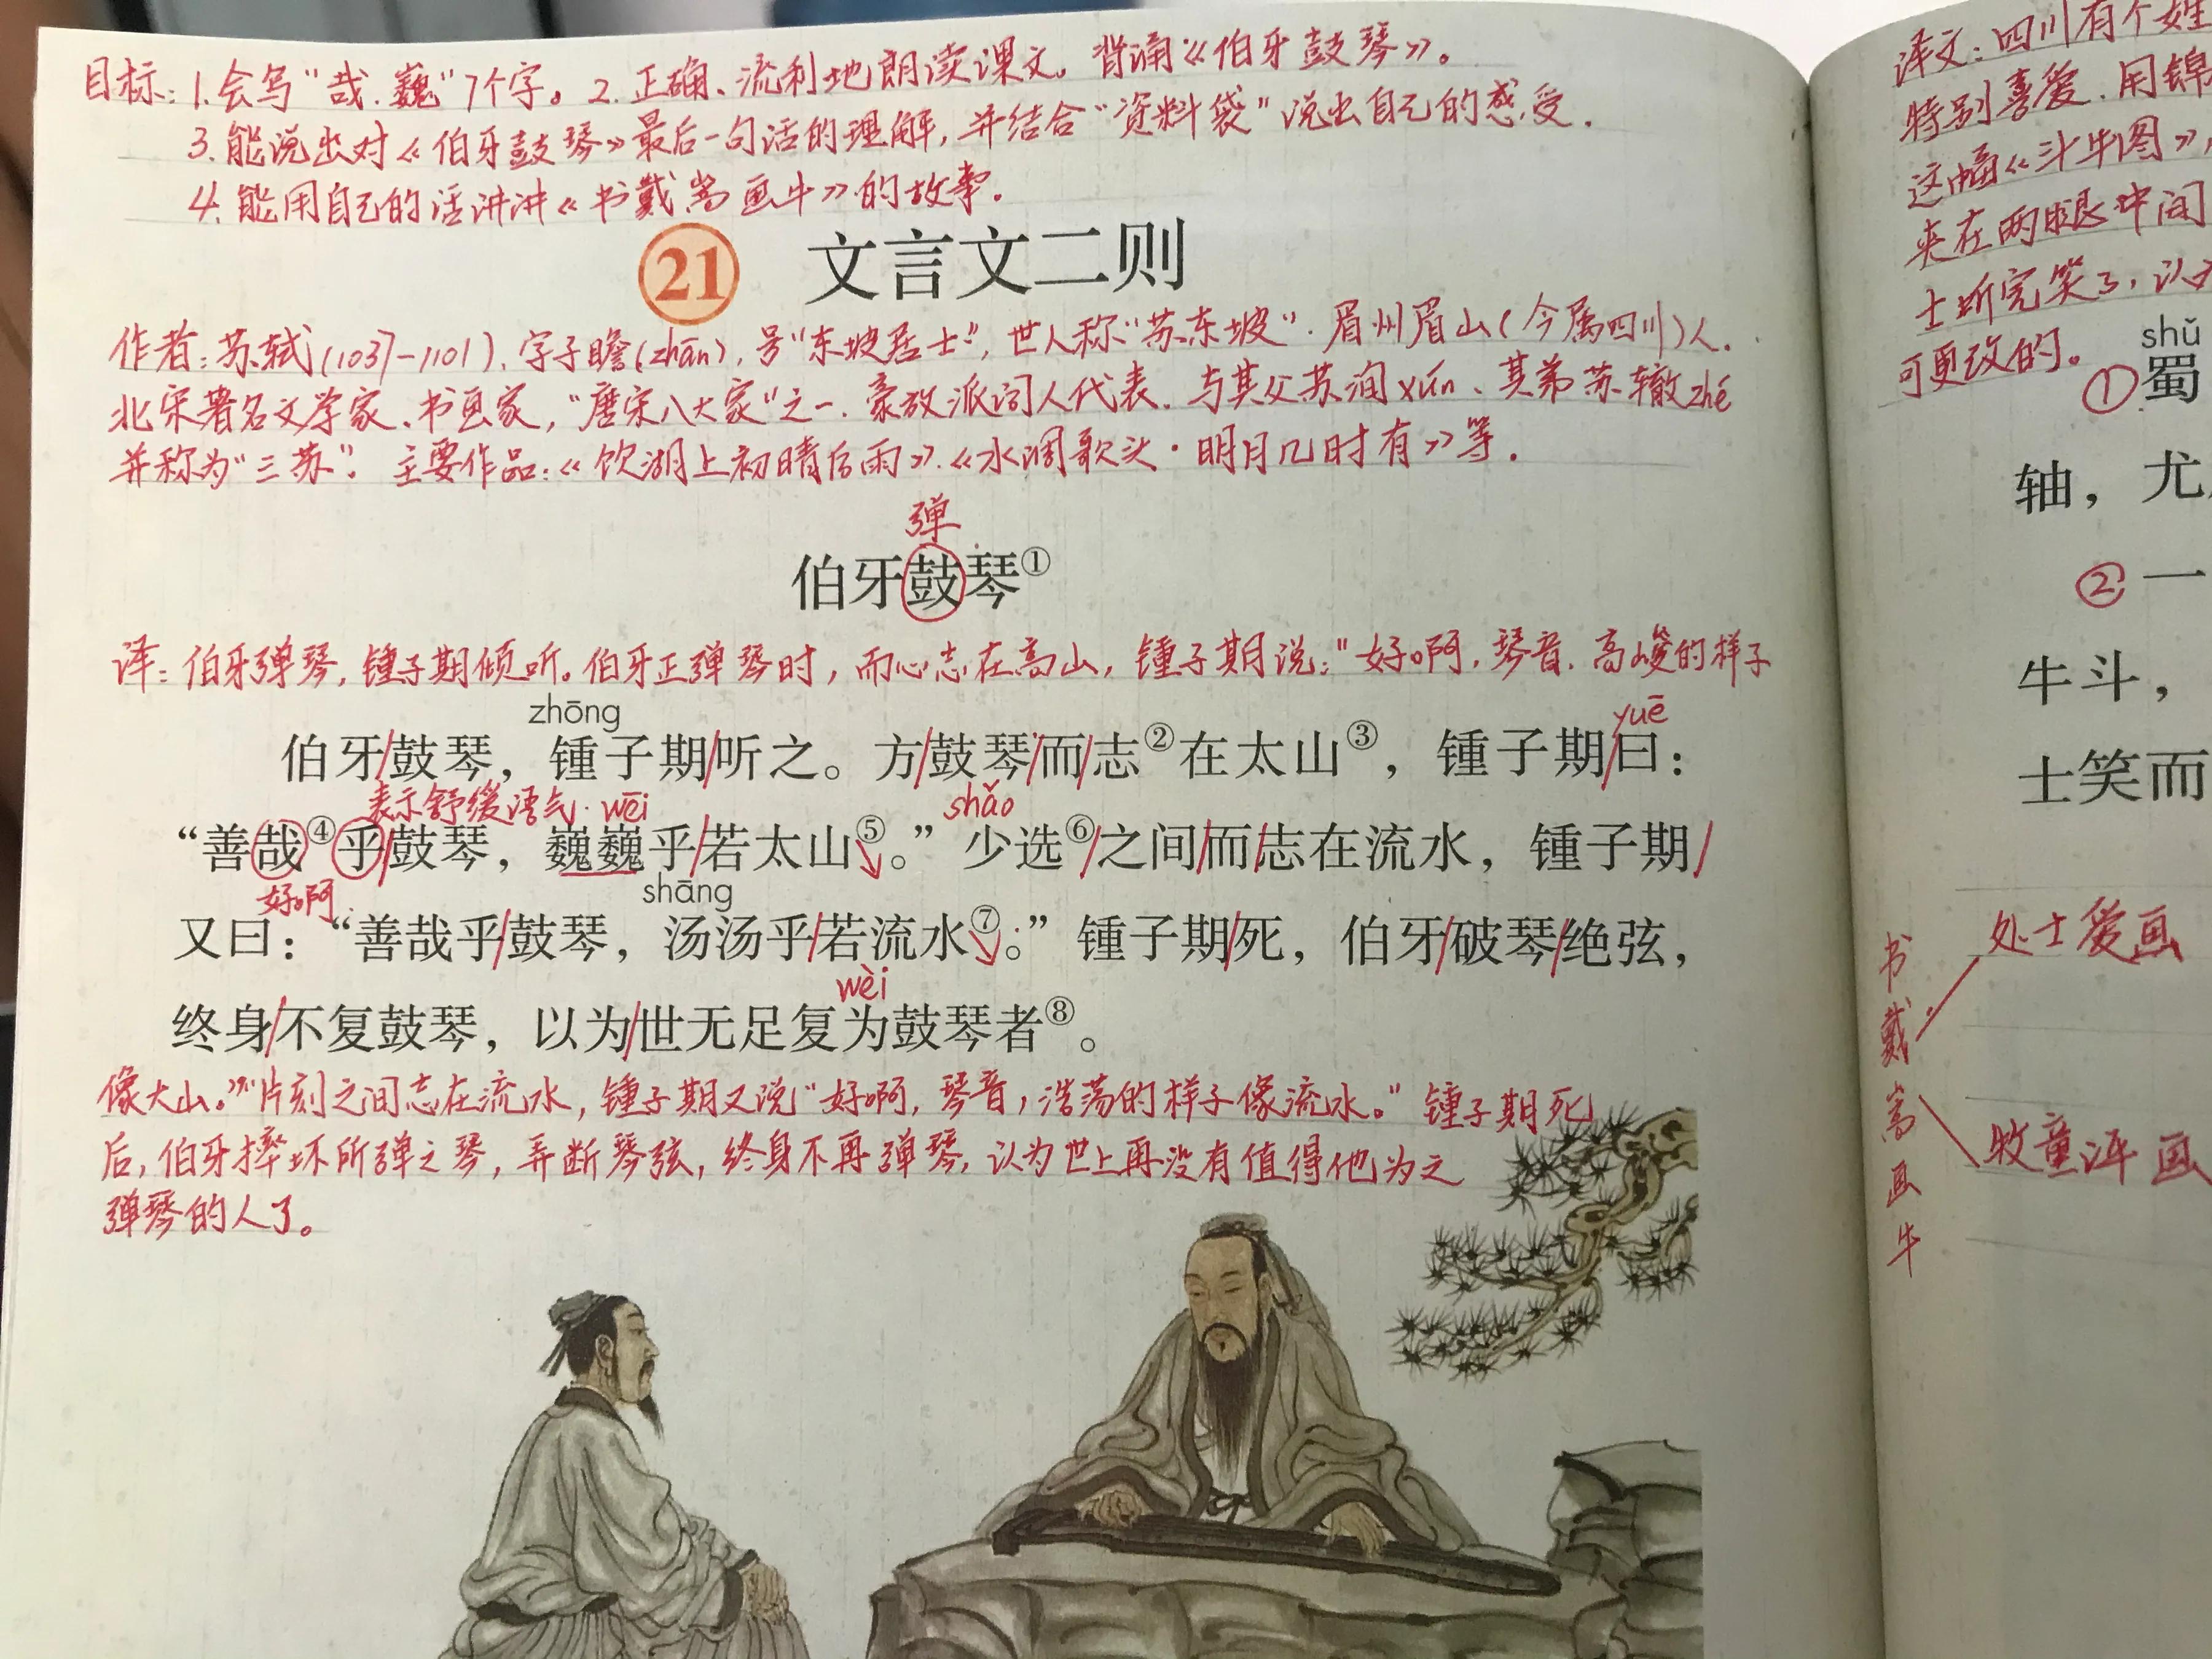 目标：1.会写“哉、巍”7个字。2.正确、流利地朗读课文。背诵《伯牙鼓琴》。
3.能说出对《伯牙鼓琴》最后一句话的理解，并结合“资料袋”说出自己的感受.
4.能用自己的话讲讲《书戴嵩画牛》的故事.
21 文言文二则
作者：苏轼(1037-1101),字子瞻(zhān),号“东坡居士”,世人称“苏东坡”.眉州眉山(今属四川)人.
北宋著名文学家、书画家,“唐宋八大家”之一.豪放派词人代表.与其父苏洵xún、其弟苏辙zhé
并称为“三苏”.主要作品:《饮湖上初晴后雨》.《水调歌头·明月几时有》等.
弹
伯牙鼓琴①
译：伯牙弹琴,锺子期倾听。伯牙正弹琴时，而心志在高山,锺子期说:“好啊,琴音,高峻的样子
zhōng
yuē
伯牙/鼓琴，锺子期/听之。方/鼓琴/而/志②在太山③，锺子期/曰：
表示舒缓语气. wēi shǎo
“善哉④乎/鼓琴，巍巍乎/若太山⑤。”少选⑥/之间/而/志在流水，锺子期/
好啊 shāng
又曰：“善哉乎/鼓琴，汤汤乎/若流水⑦。”锺子期/死，伯牙/破琴/绝弦，
wèi
终身/不复鼓琴，以为/世无足复为鼓琴者⑧。
像大山。”片刻之间志在流水,锺子期又说“好啊,琴音,浩荡的样子像流水。”锺子期死
后,伯牙摔坏所弹之琴,弄断琴弦,终身不再弹琴,认为世上再没有值得他为之
弹琴的人了。
译文:四川有个姓
特别喜爱.用锦
这幅《斗牛图》,
夹在两腿中间
士听完笑了,认为
可更改的。
shǔ
①蜀
轴，尤
②一
牛斗，
士笑而
书戴嵩画牛
处士爱画
牧童评画